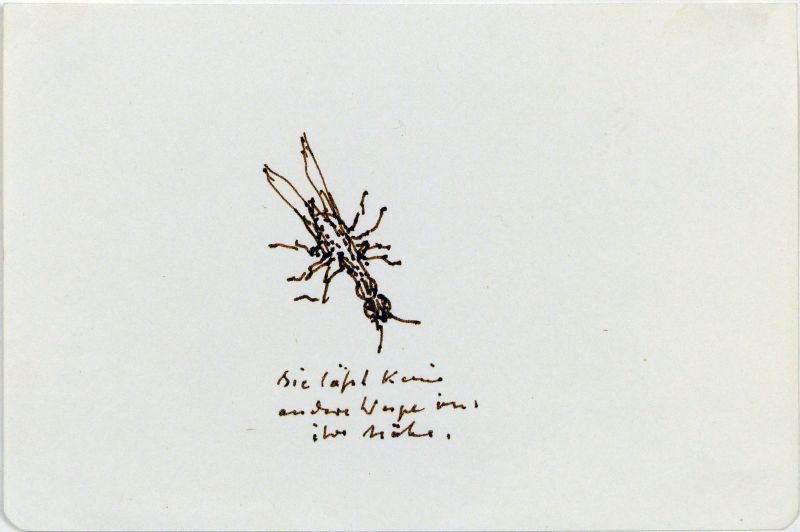 Sie läßt keine
andere Wespe in
ihre Nähe.